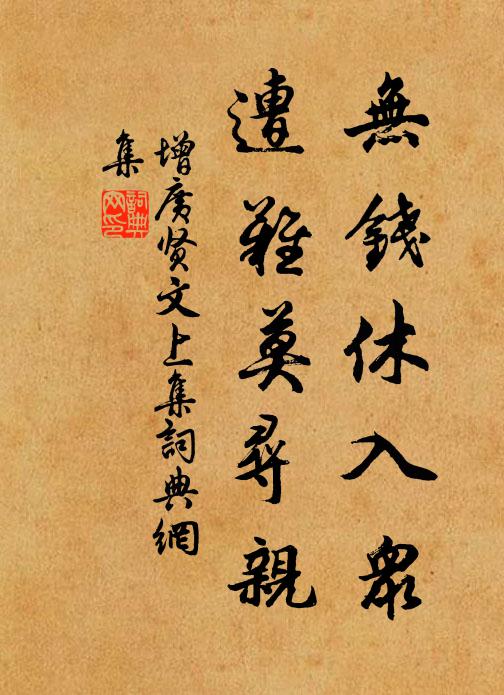 無錢休入眾
遭難莫尋親
增廣贤文上集詞典網
集
詞典
网印